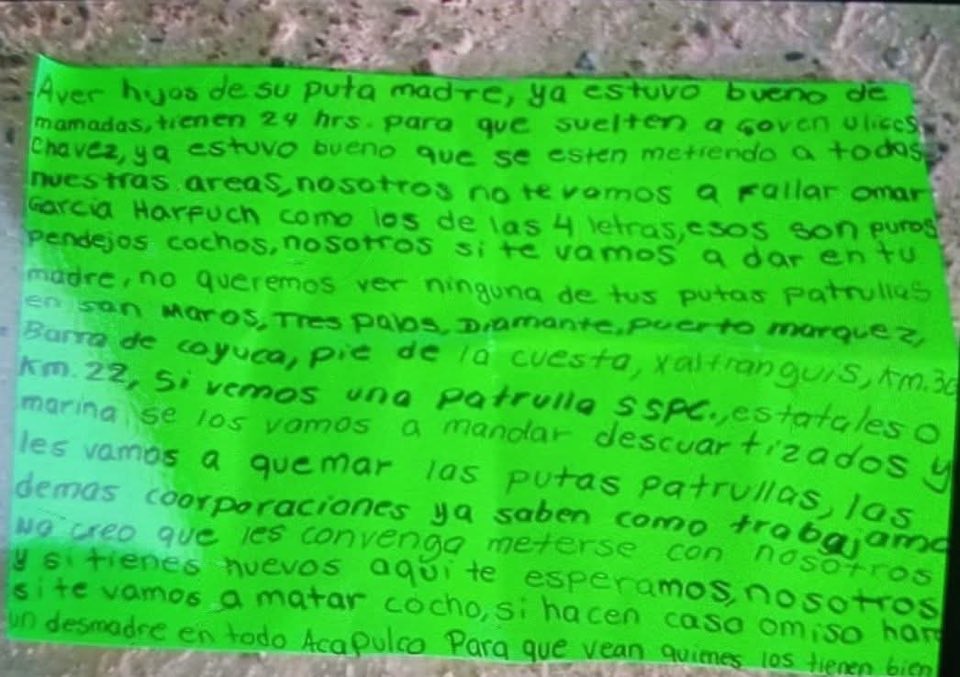 Aver hijos de su puta madre, ya estuvo bueno de
mamadas, tienen 24 hrs. para que suelten a Goven Ulices
Chavez, ya estuvo bueno que se esten metiendo a todas
nuestras areas, nosotros no te vamos a Fallar omar
Garcia Harfuch como los de las 4 letras, esos son puros
pendejos cochos, nosotros si te vamos a dar en tu
madre, no queremos ver ninguna de tus putas patrullas
en san maros, Tres palos, Diamante, puerto marquez,
Barra de coyuca, pie de la cuesta, xaltranguis, Km. 30
Km. 22, Si vemos una patrulla SSPC., estatales o
marina se los vamos a mandar descuartizados y
les vamos a quemar las putas patrullas, las
demas coorporaciones ya saben como trabajamo
No creo que les convenga meterse con nosotros
y si tienes huevos aqui te esperamos, nosotros
si te vamos a matar cocho, si hacen caso omiso har
un desmadre en todo Acapulco Para que vean quienes los tienen bien